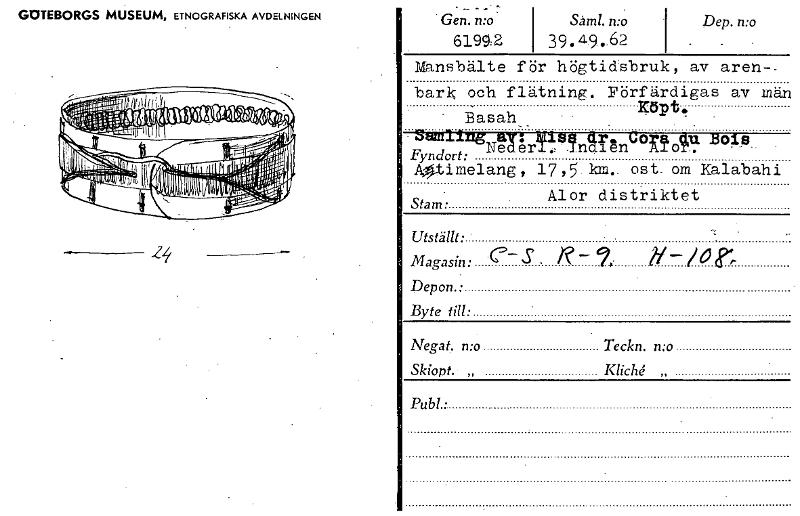 GÖTEBORGS MUSEUM, ETNOGRAFISKA AVDELNINGEN
24
Gen. n:o Saml. n:o Dep. n:o
61992 39.49.62
Mansbälte för högtidsbruk, av aren-
bark och flätning. Förfärdigas av män
Köpt.
Basah
Samling av: Miss dr. Cora du Bois
Nederl. Indien Alor.
Fyndort:
Atimelang, 17,5 km. ost om Kalabahi
Alor distriktet
Stam:
Utställt:
Magasin: C-S. R-9. H-108.
Depon.:
Byte till:
Negat. n:o Teckn. n:o
Skiopt. „ Kliché „
Publ.: